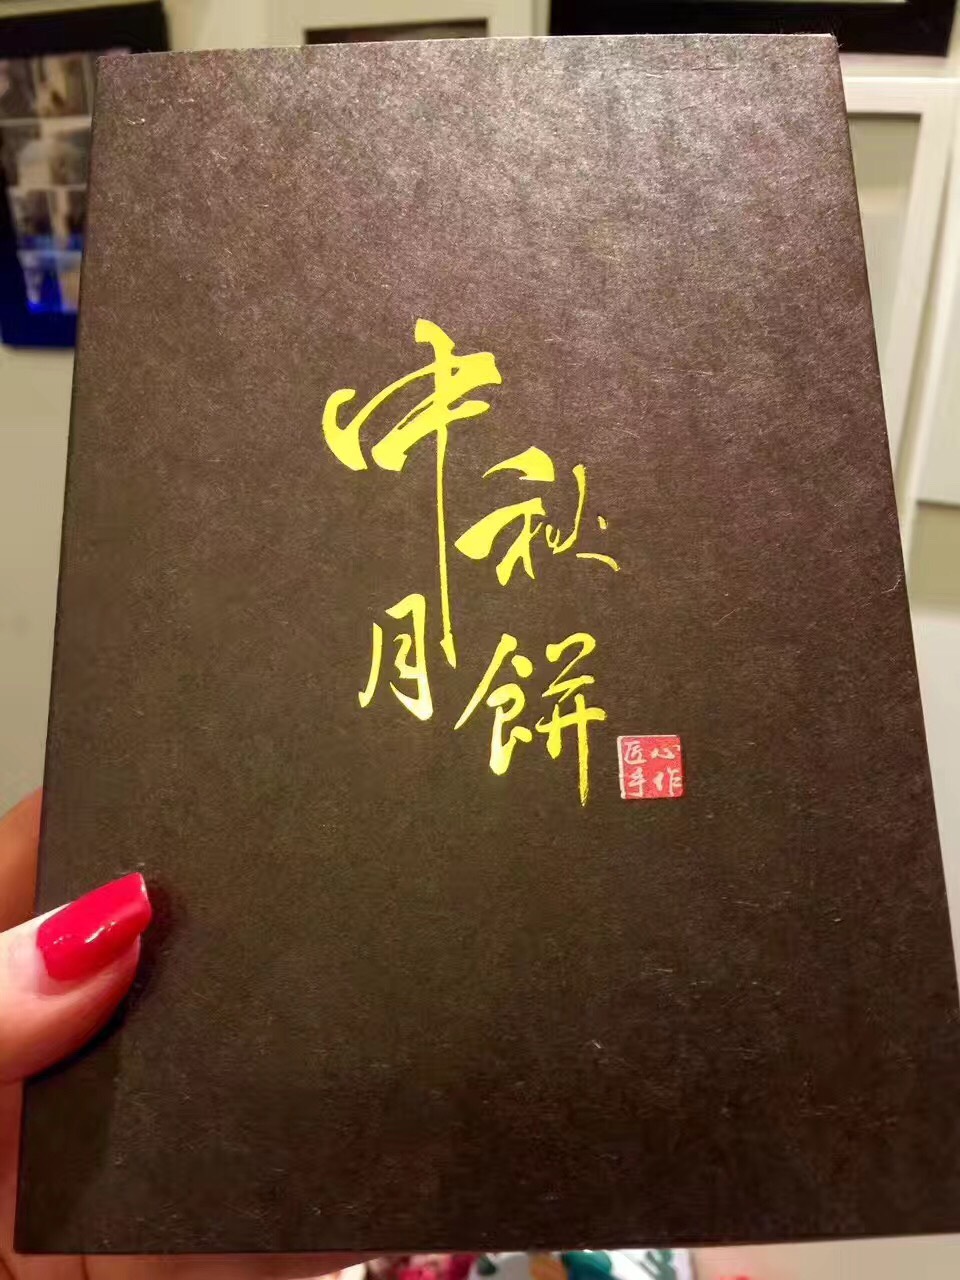 中秋
月餅
匠心
手作